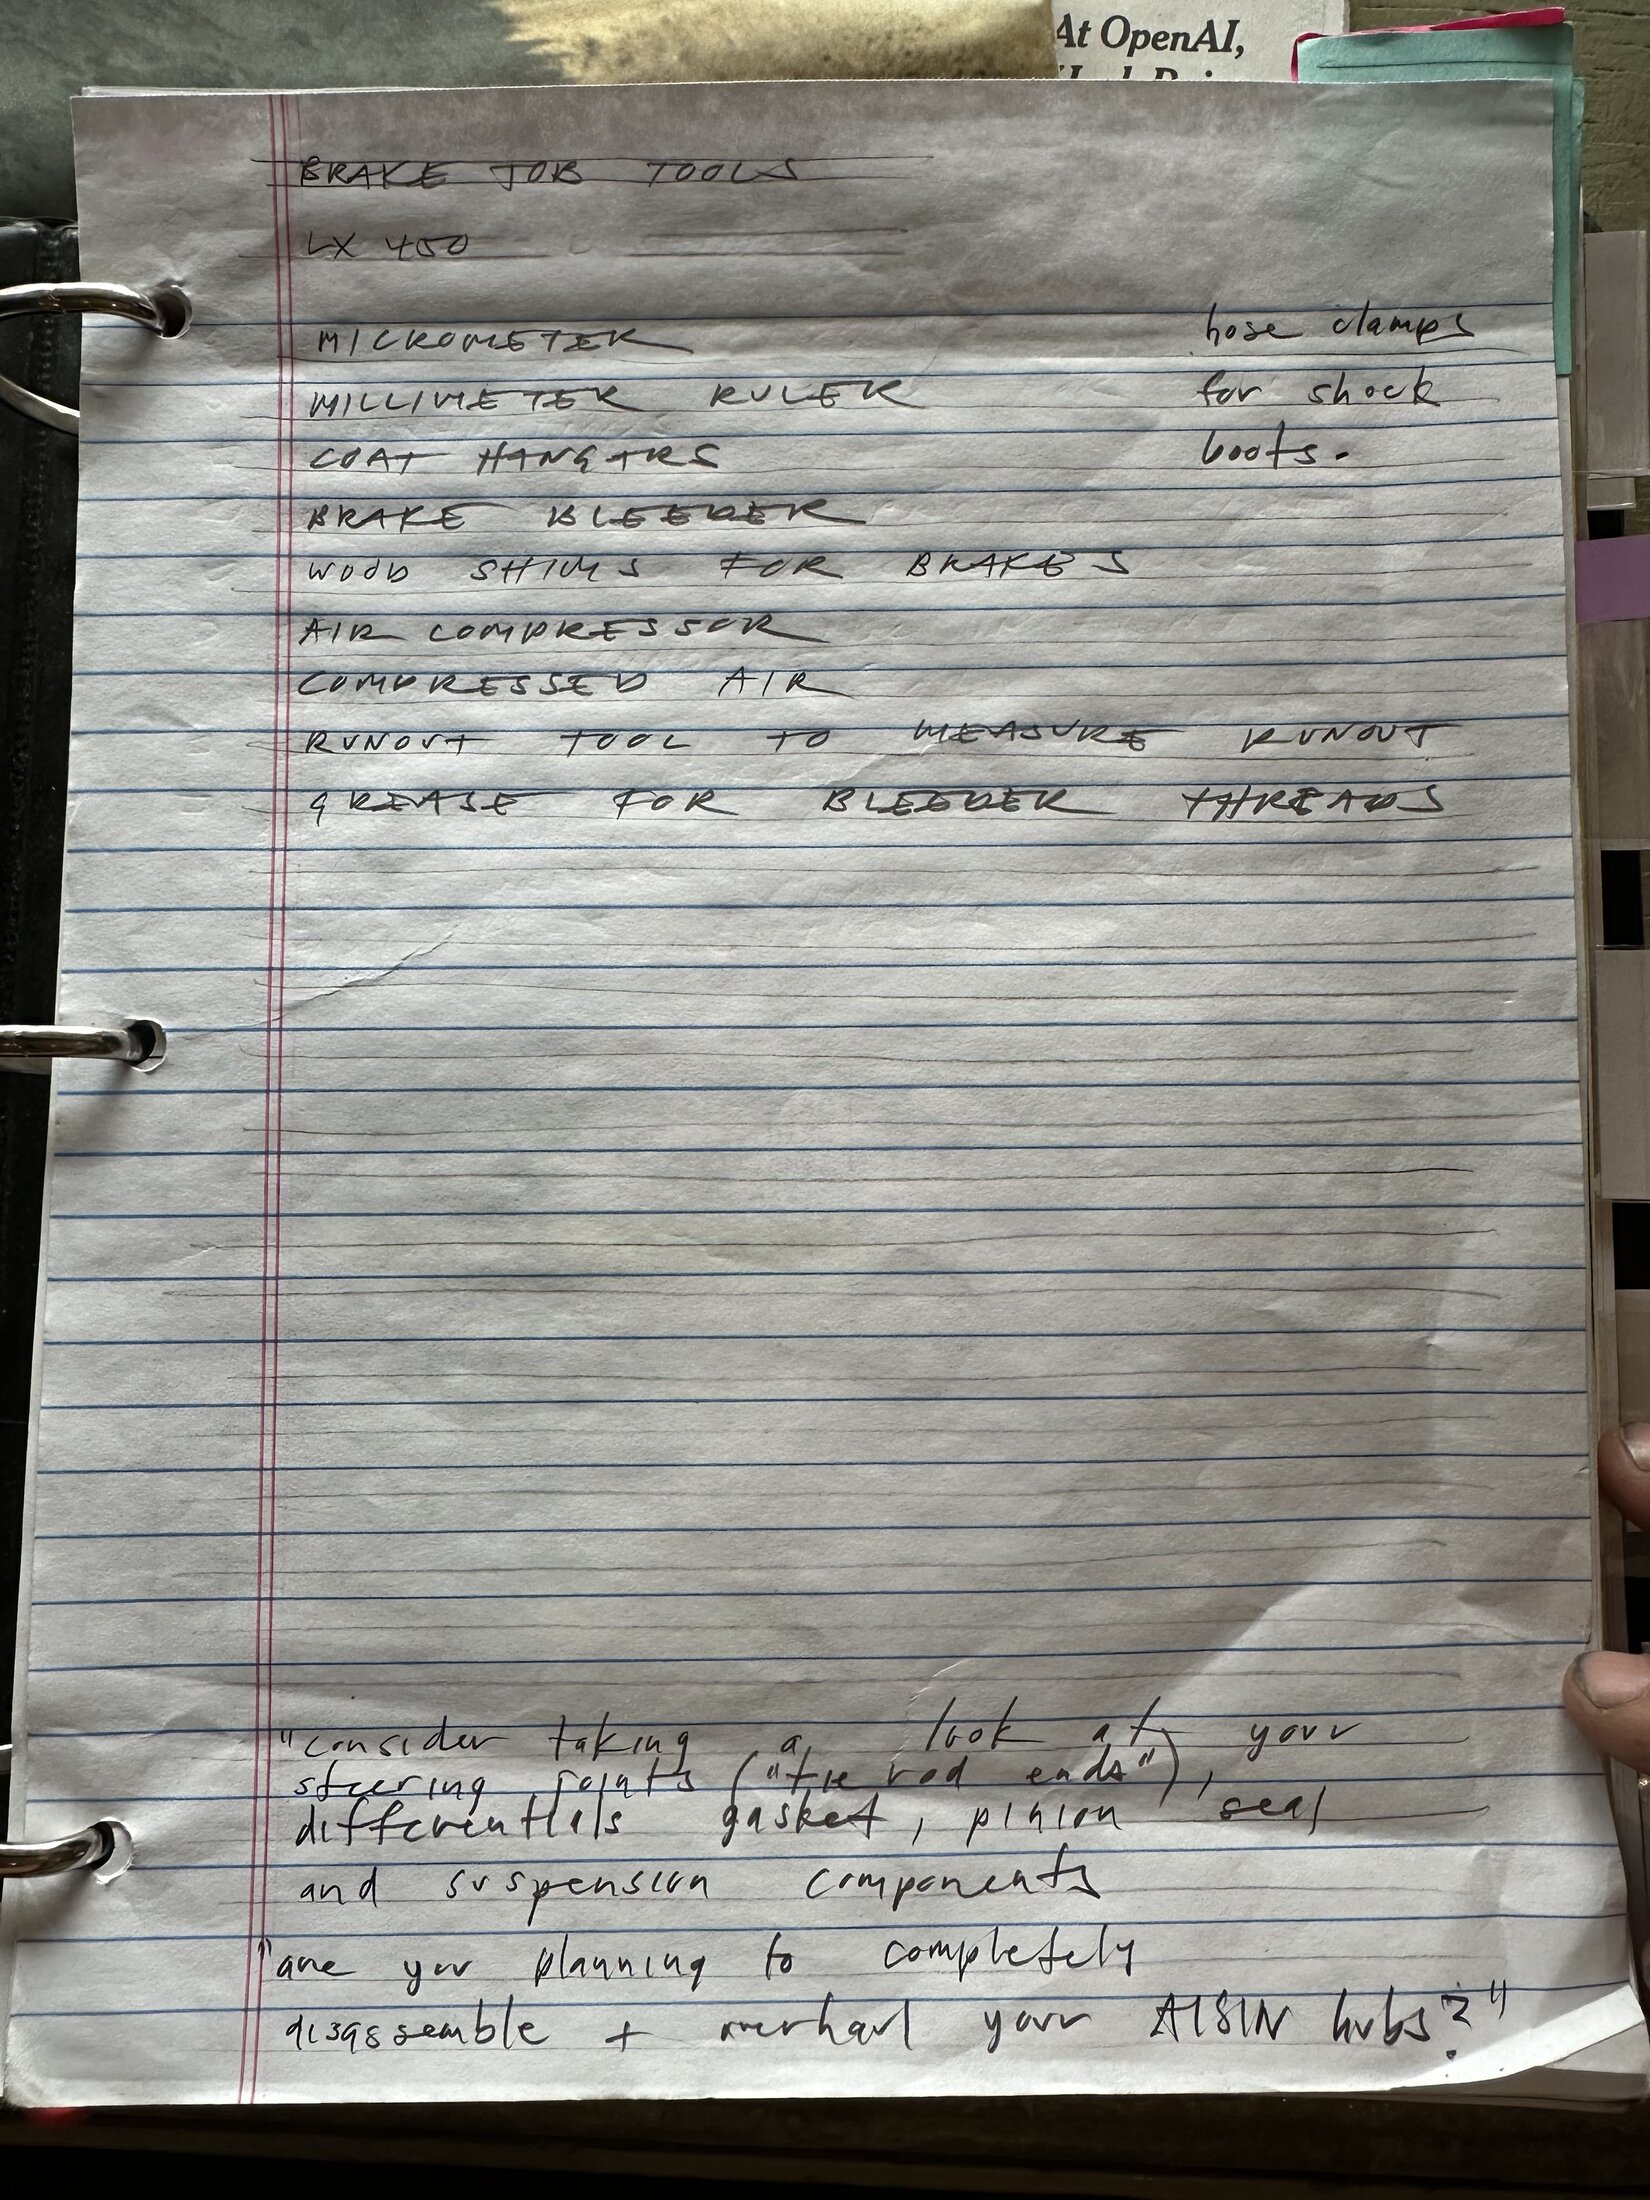 At OpenAI,
BRAKE JOB TOOLS
LX 450
MICROMETER
MILLIMETER RULER
COAT HANGARS
BRAKE BLEEDER
WOOD SHIMS FOR BRAKES
AIR COMPRESSOR
COMPRESSED AIR
RUNOUT TOOL TO MEASURE RUNOUT
GREASE FOR BLEEDER THREADS
hose clamps
for shock
boots.
"consider taking a look at your
steering joints ("tie rod ends"),
differentials gasket, pinion seal
and suspension components
"are you planning to completely
disassemble + overhaul your AISIN hubs?"